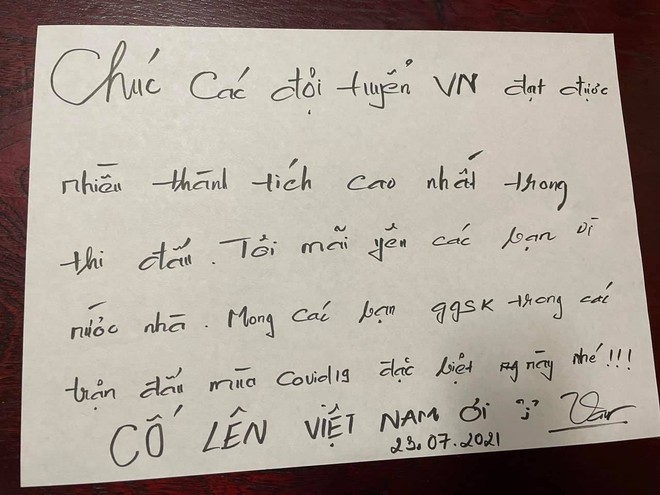 Chúc các đội tuyển VN đạt được
nhiều thành tích cao nhất trong
thi đấu. Tôi mãi yêu các bạn vì
nước nhà. Mong các bạn ggsk trong các
trận đấu mùa Covid19 đặc biệt này nhé!!!
CỐ LÊN VIỆT NAM ƠI
23.07.2021